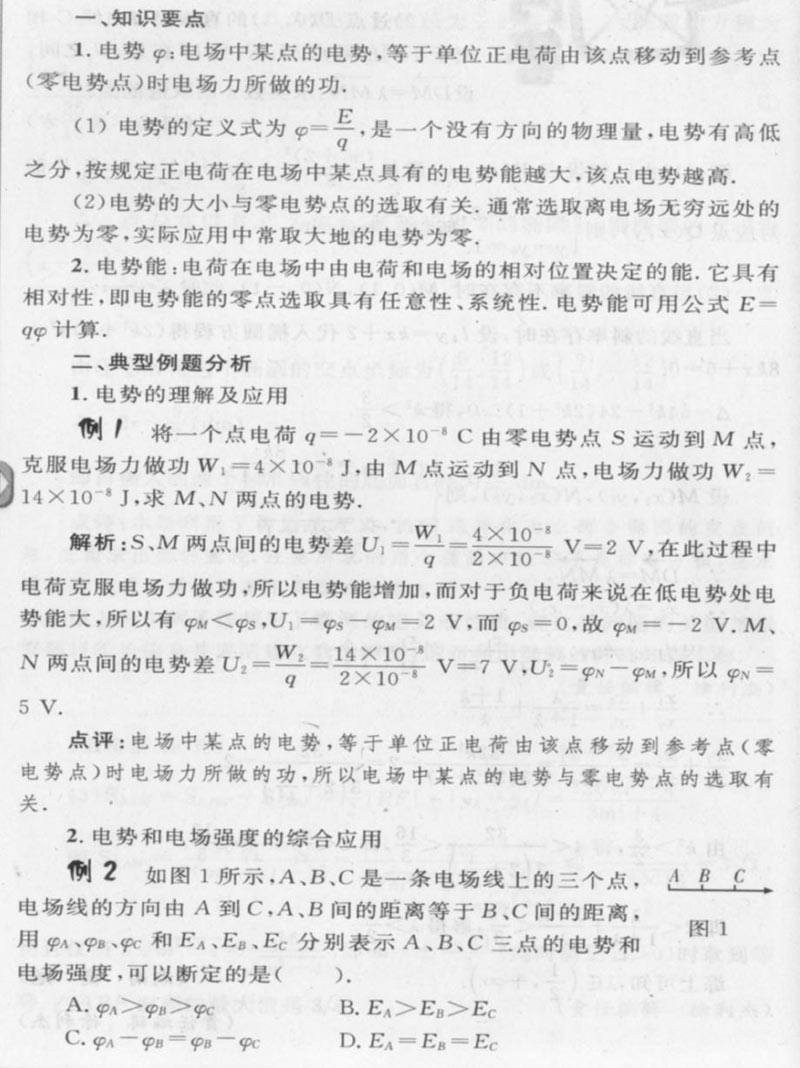 一、知识要点
1. 电势 φ:电场中某点的电势,等于单位正电荷由该点移动到参考点
(零电势点)时电场力所做的功.
(1) 电势的定义式为 φ=E/q,是一个没有方向的物理量,电势有高低
之分,按规定正电荷在电场中某点具有的电势能越大,该点电势越高.
(2)电势的大小与零电势点的选取有关.通常选取离电场无穷远处的
电势为零,实际应用中常取大地的电势为零.
2. 电势能:电荷在电场中由电荷和电场的相对位置决定的能. 它具有
相对性,即电势能的零点选取具有任意性、系统性. 电势能可用公式 E=
qφ 计算.
二、典型例题分析
1. 电势的理解及应用
例1 将一个点电荷 q=-2×10⁻⁸ C 由零电势点 S 运动到 M 点,
克服电场力做功 W₁=4×10⁻⁸ J,由 M 点运动到 N 点,电场力做功 W₂=
14×10⁻⁸ J,求 M、N 两点的电势.
解析:S、M 两点间的电势差 U₁=W₁/q=4×10⁻⁸/2×10⁻⁸ V=2 V,在此过程中
电荷克服电场力做功,所以电势能增加,而对于负电荷来说在低电势处电
势能大,所以有 φM<φS,U₁=φS-φM=2 V,而 φS=0,故 φM=-2 V. M、
N 两点间的电势差 U₂=W₂/q=14×10⁻⁸/2×10⁻⁸ V=7 V,U₂=φN-φM,所以 φN=
5 V.
点评:电场中某点的电势,等于单位正电荷由该点移动到参考点(零
电势点)时电场力所做的功,所以电场中某点的电势与零电势点的选取有
关.
2. 电势和电场强度的综合应用
例2 如图 1 所示,A、B、C 是一条电场线上的三个点,
电场线的方向由 A 到 C,A、B 间的距离等于 B、C 间的距离,
用 φA、φB、φC 和 EA、EB、EC 分别表示 A、B、C 三点的电势和
电场强度,可以断定的是( ).
A B C
图 1
A. φA>φB>φC B. EA>EB>EC
C. φA-φB=φB-φC D. EA=EB=EC